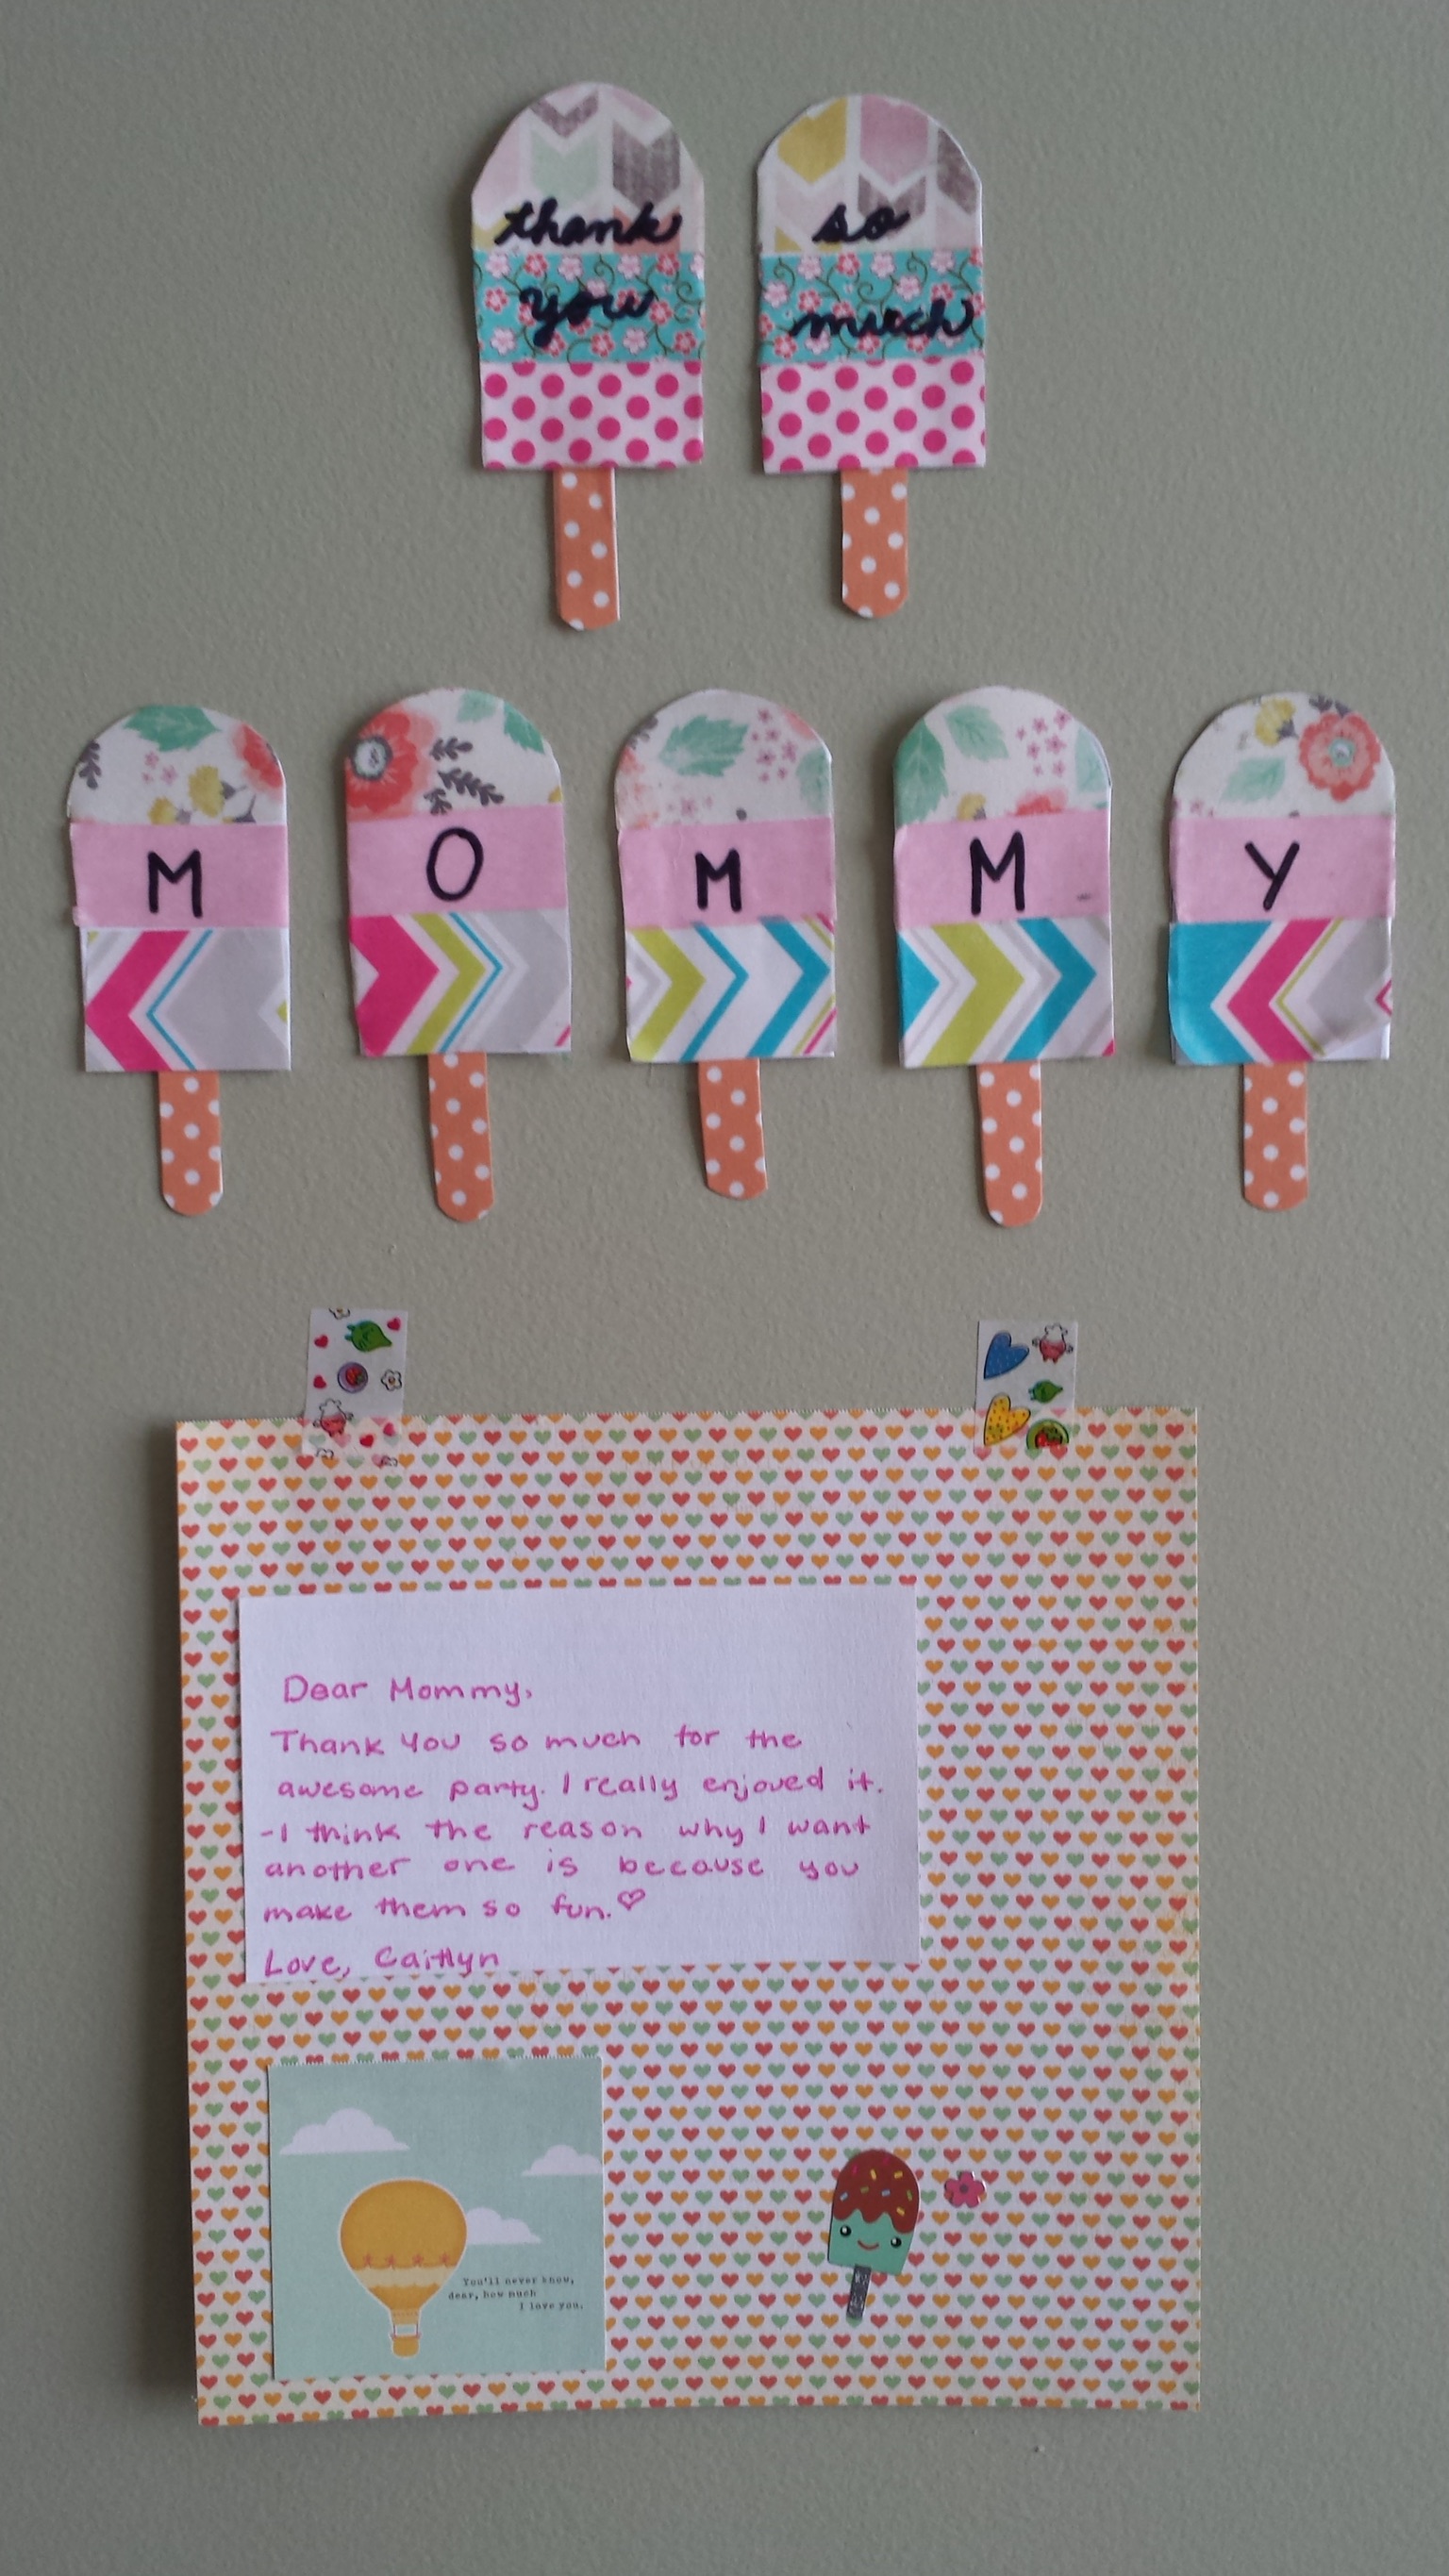 thank
you
so
much
M O M M Y
Dear Mommy,
Thank you so much for the
awesome party. I really enjoyed it.
-I think the reason why I want
another one is because you
make them so fun.♡
Love, Caitlyn
You'll never know,
dear, how much
I love you.